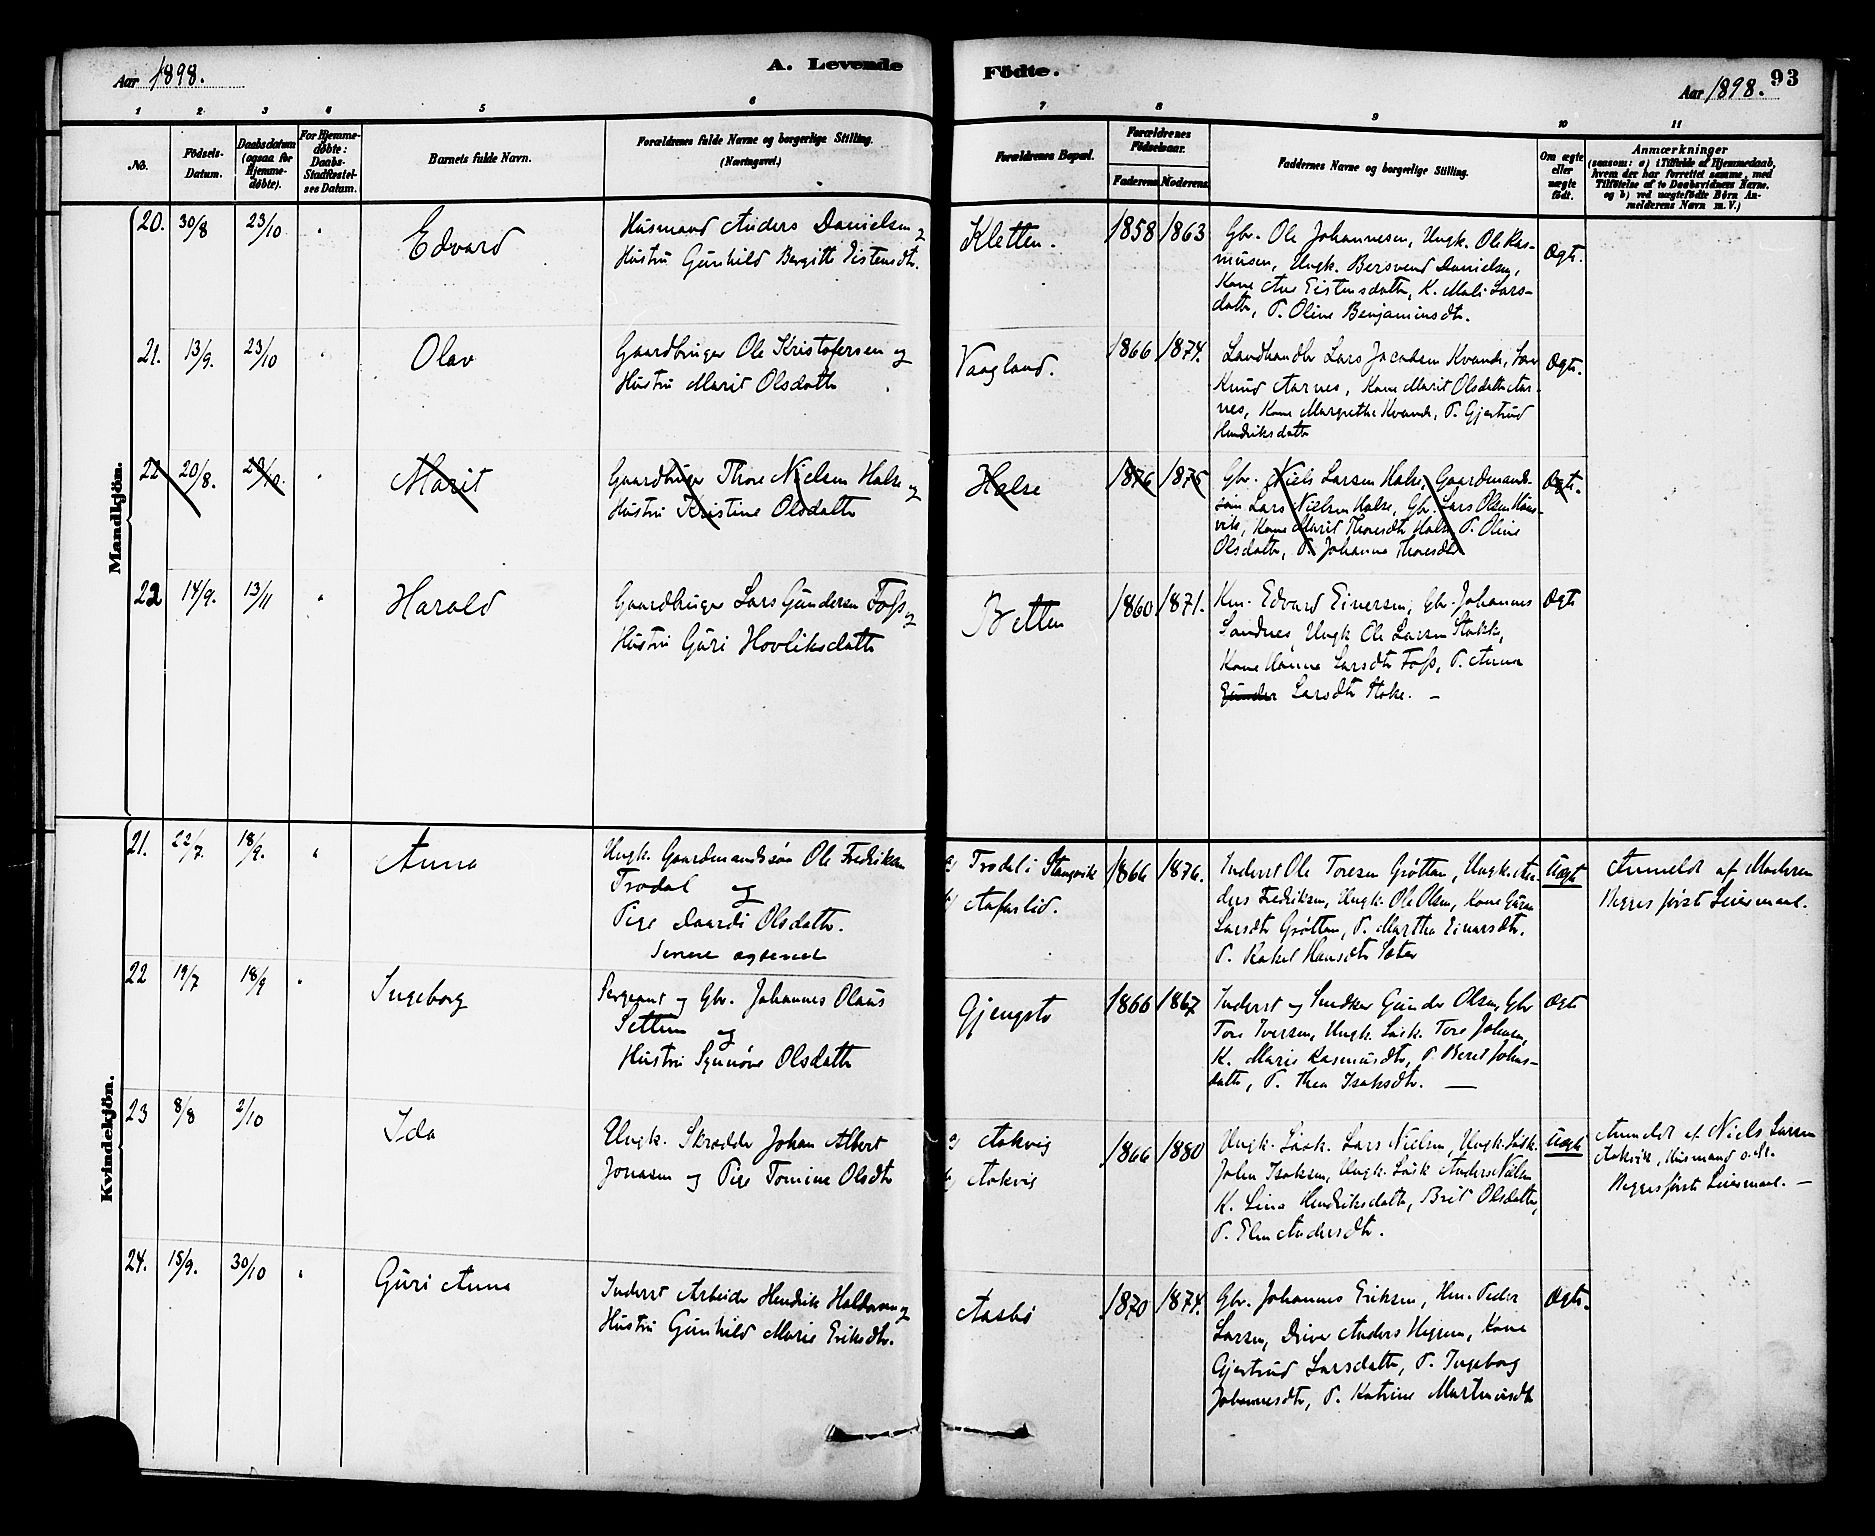 Aar 1898.
A. Levende
Födte.
Aar 1898.
93
1 2 3 4 5 6 7 8 9 10 11
No.
Födsels-
Datum.
Daabsdatum
(ogsaa for
Hjemme-
døbte).
For Hjemme-
døbte:
Daabs-
Stadfæstel-
ses Datum.
Barnets fulde Navn.
Forældrenes fulde Navne og borgerlige Stilling.
(Næringsvei.)
Forældrenes Bopæl.
Forældrenes
Födselsaar.
Faderens Moderens
Faddernes Navne og borgerlige Stilling.
Om ægte
eller
uægte
født.
Anmærkninger
(saasom: a) i Tilfælde af Hjemmedaab,
hvem der har forrettet samme, med
Tilføielse af to Daabsvidners Navne.
og b) ved uægtefødte Börn An-
melderens Navn m. V.)
Mandkjön.
20. 30/8 23/10 Edvard
Husmand Anders Danielsen og
Hustru Gunhild Bergitte Eistensdtr.
Kletten. 1858 1863
Gbr. Ole Johannesen, Ungk. Ole Ras-
musen, Ungk. Bersvend Danielsen,
Kone Ane Eistensdatter, K. Mali Lars-
datter, P. Oline Benjaminsdtr.
Ægte.
21. 13/9. 23/10 Olav
Gaardbruger Ole Kristofersen og
Hustru Marit Olsdatter
Vaagland. 1866 1874.
Landhandler Lars Jacobsen Kvande,
Knud Aarnes, Kone Marit Olsdatter Aar-
nes, Kone Margrethe Kvande, P. Gjertrud
Hendriksdatter
Ægte.
22 20/8. 23/10. Marit
Gaardbruger Thore Nielsen Halse og
Hustru Kristine Olsdatter
Halse 1876 1875
Gbr. Niels Larsen Halse, Gaardmands-
søn Lars Nielsen Halse, Gbr. Lars Olsen
vik, Kone Marit Thoresdtr Halse P. Oline
Olsdatter, P. Johanna Thoresdtr
Ægte.
22 14/9. 13/11 Harald
Gaardbruger Lars Gundersen Foss og
Hustru Guri Hovliksdatter
Betten 1860 1871.
Km. Edvard Einersen, Gbr. Johannes
Sandnes, Ungk Ole Larsen Stokke,
Kone Hanna Larsdtr Foss, P. Anna
Gunder Larsdtr Stoke. —
Ægte
Kvindekjön.
21. 22/7. 18/9. Anna
Ungk. Gaardmandssøn Ole Fredriksen
Trødal og
Pige Daardi Olsdatter.
Senere ægteviet
a) Trødal i Stangvik
b) Aafarlid. 1866 1876.
Inderst Ole Toresen Grøtten, Ungk. An-
ders Fredriksen, Ungk. Ole Olsen, Kone Guru
Larsdtr Grøtten, P. Martha Einarsdtr.
P. Rakel Hansdtr Sæter
Uægte
Anmeldt af Moderen
Begges første Leiermaal.
22 19/7 18/9 Ingeborg
Sergeant og Gbr. Johannes Olaus
Settem og
Hustru Synnøve Olsdatter
Gjengstø 1866 1867
Inderst og Snedker Gunder Olsen, Gbr
Tore Iversen, Ungk. Tore Johnsen,
K. Marie Rasmusdtr, P. Beret Johns-
datter, P. Thea Isaksdtr. —
Ægte
23 8/8 2/10 Ida
Ungk. Skrædder Johan Albert
Jonasen og Pige Tomine Olsdtr
a) Aakvig
b) Aakvig 1866 1880
Ungk. Lars Nielsen, Ungk.
John Isaksen, Ungk. Anders Nielsen
K. Lina Hendriksdatter, Brit Olsdatter,
P. Elen Andersdtr.
Uægte
Anmeldt af Niels Larsen
Aakvik, Husmand
Begges første Leiermaal. —
24. 15/9. 30/10 Guri Anna
Inderst Arbeider Hendrik Haldorsen og
Hustru Gunhild Marie Eriksdtr.
Aasbø 1870 1874.
Gbr. Johannes Eriksen, Hm. Peder
Larsen, Anders Kone
Gjertrud Larsdatter, P. Ingeborg
Johannesdtr, P. Katrine Martinusdtr
Ægte.